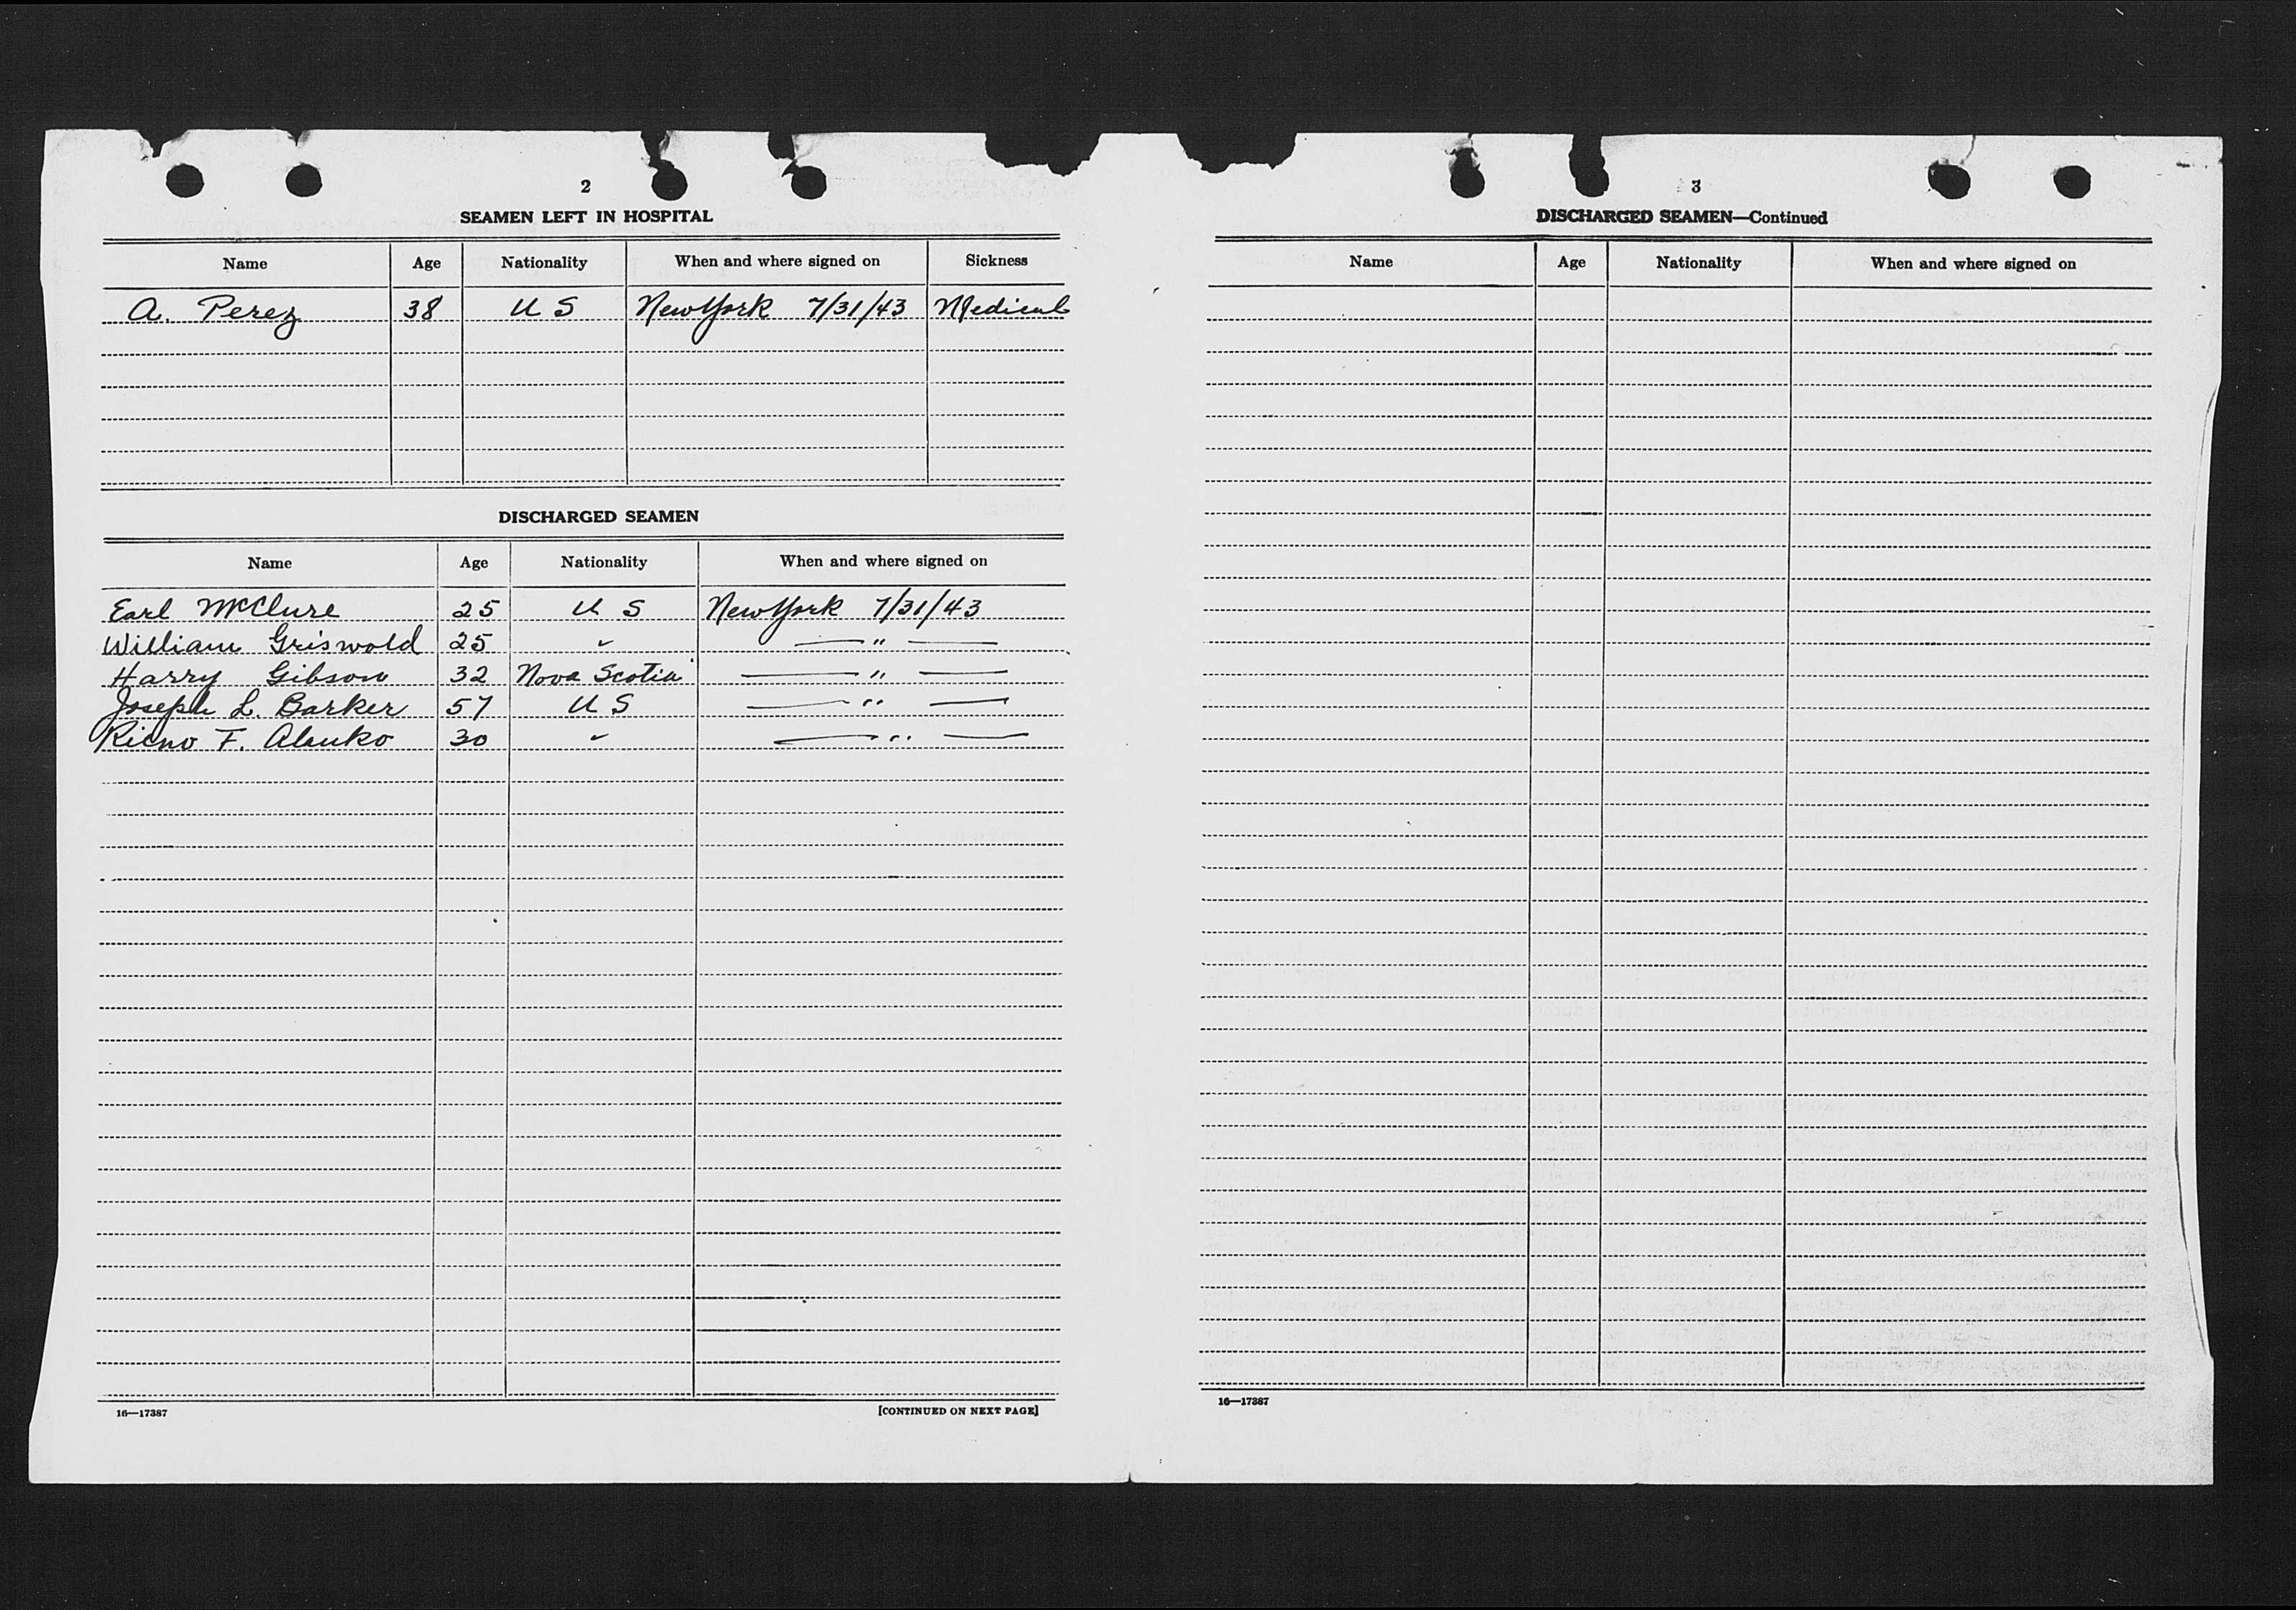 2
SEAMEN LEFT IN HOSPITAL
Name Age Nationality When and where signed on Sickness
A. Perez 38 U S New York 7/31/43 Medical
DISCHARGED SEAMEN
Name Age Nationality When and where signed on
Earl McClure 25 U S New York 7/31/43
William Griswold 25 " — " —
Harry Gibson 32 Nova Scotia — " —
Joseph L. Barker 57 U S — " —
F. 30 " — " —
16—17387 [CONTINUED ON NEXT PAGE]
3
DISCHARGED SEAMEN—Continued
Name Age Nationality When and where signed on
16—17387